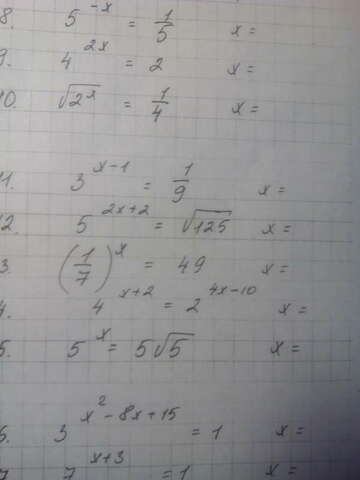 8. 5^{-x} = 1/5 x =
9. 4^{2x} = 2 x =
10. √(2^x) = 1/4 x =
11. 3^{x-1} = 1/9 x =
12. 5^{2x+2} = √125 x =
3. (1/7)^x = 49 x =
4. 4^{x+2} = 2^{4x-10} x =
5. 5^x = 5√5 x =
6. 3^{x^2-8x+15} = 1 x =
7. 7^{x+3} = 1 x =